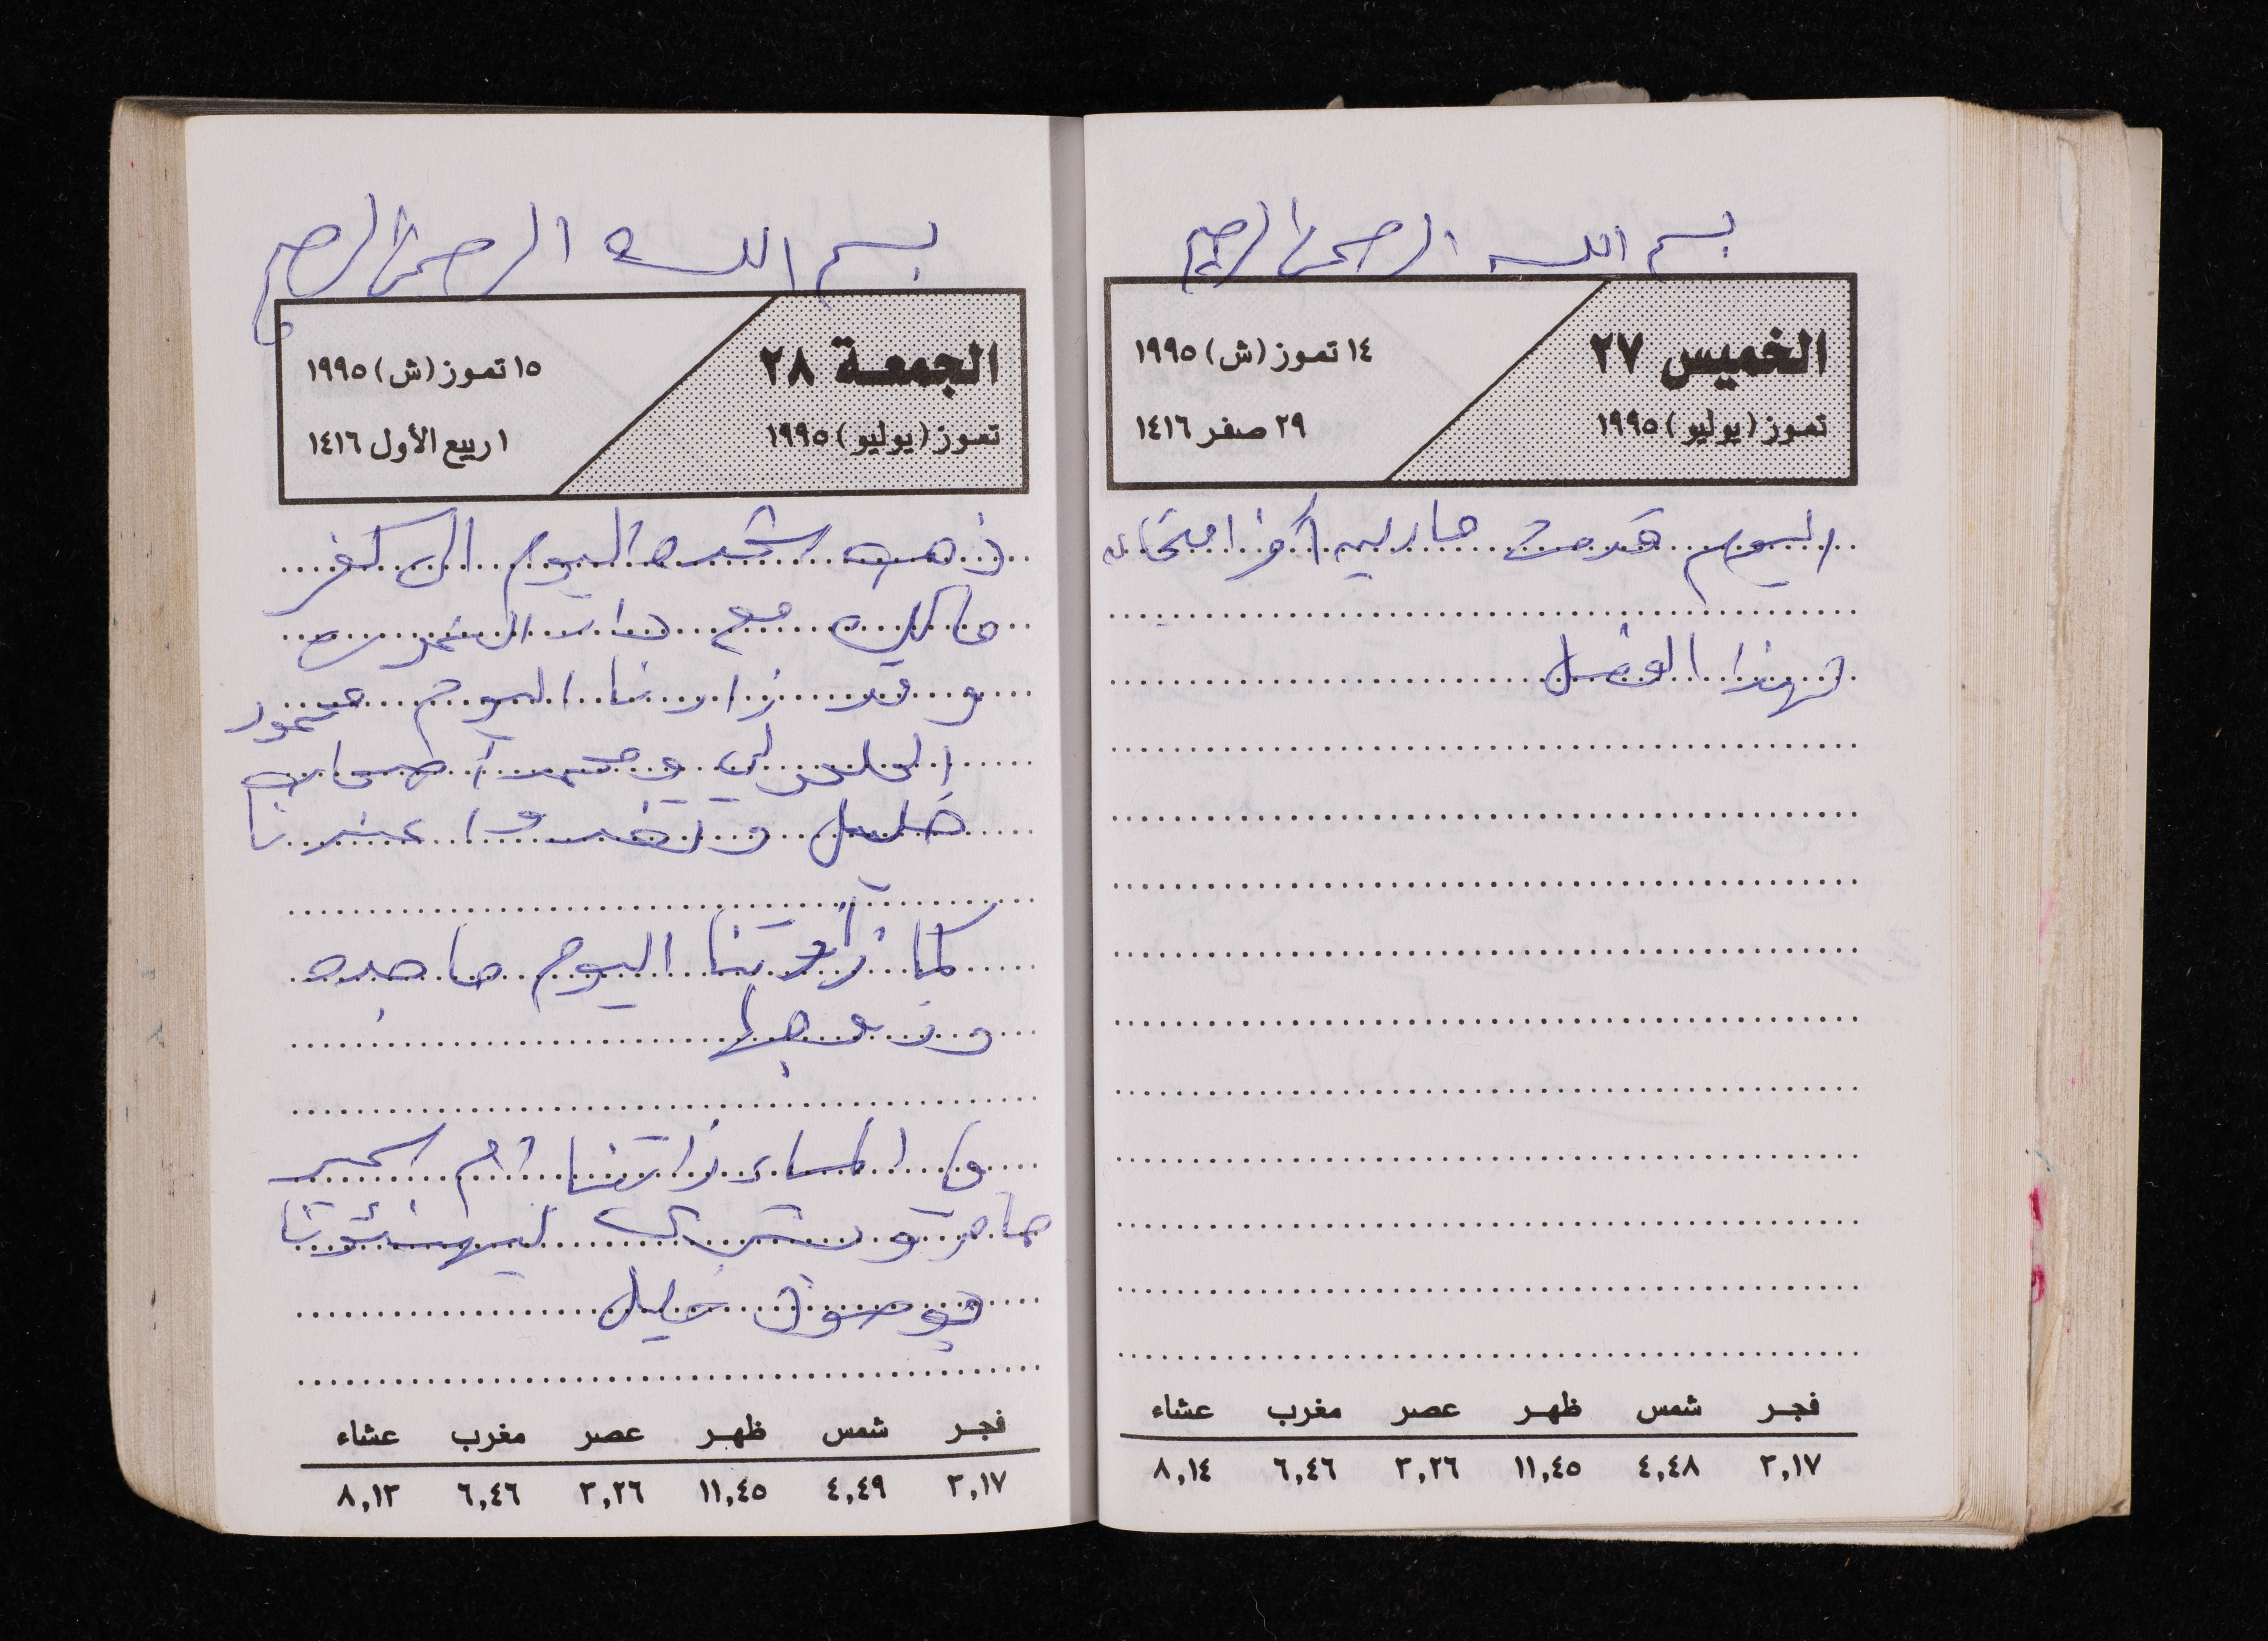 بسم الله الرحمن الرحيم
الخميس ٢٧
تموز (يوليو) ١٩٩٥
١٤ تموز (ش) ١٩٩٥
٢٩ صفر ١٤١٦
اليوم قدمت ماريا آخر امتحان
لهذا الفصل
فجر شمس ظهر عصر مغرب عشاء
٣,١٧ ٤,٤٨ ١١,٤٥ ٣,٢٦ ٦,٤٦ ٨,١٤
بسم الله الرحمن الرحيم
الجمعة ٢٨
تموز (يوليو) ١٩٩٥
١٥ تموز (ش) ١٩٩٥
١ ربيع الأول ١٤١٦
ذهب اليوم الى كفر
مالك مع دار
وقد زارنا اليوم محمود
ومحمد اصحاب
خليل وتغدوا عندنا
كما زارتنا اليوم ماجده
وزوجها
و المساء زارتنا أم سمير
ليهنئونا
خليل
فجر شمس ظهر عصر مغرب عشاء
٣,١٧ ٤,٤٩ ١١,٤٥ ٣,٢٦ ٦,٤٦ ٨,١٣